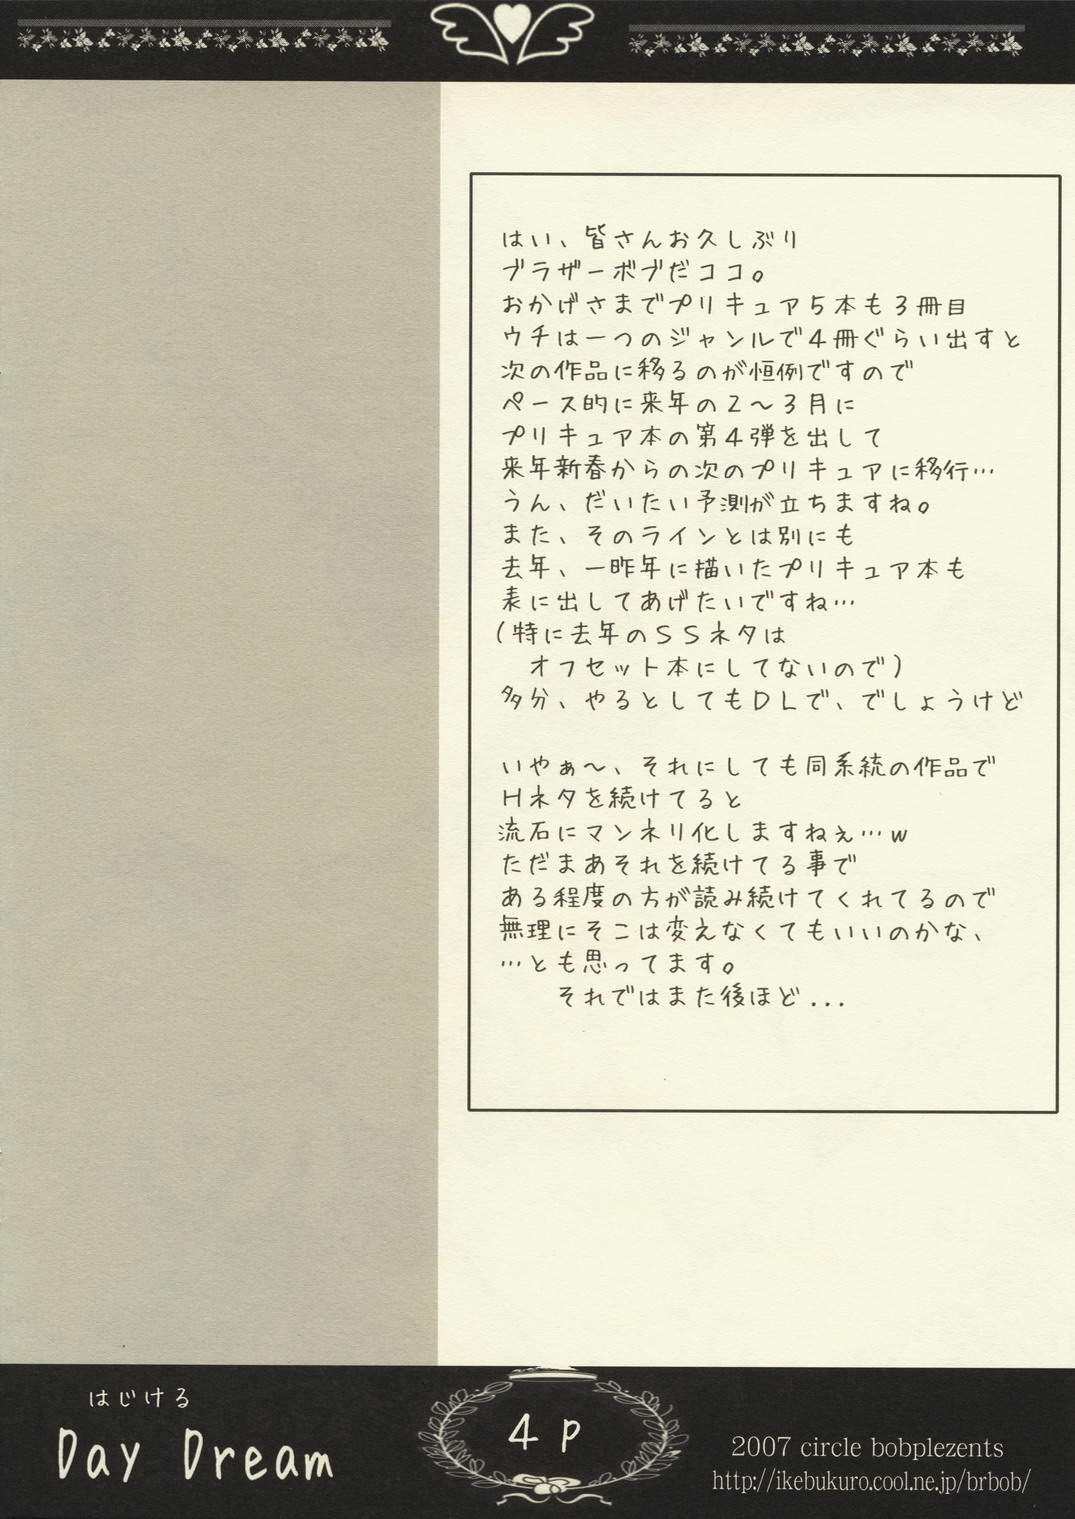 はい、皆さんお久しぶり
ブラザーボブだココ。
おかげさまでプリキュア5本も3冊目
ウチは一つのジャンルで4冊ぐらい出すと
次の作品に移るのが恒例ですので
ペース的に来年の2〜3月に
プリキュア本の第4弾を出して
来年新春からの次のプリキュアに移行…
うん、だいたい予測が立ちますね。
また、そのラインとは別にも
去年、一昨年に描いたプリキュア本も
表に出してあげたいですね…
(特に去年のSSネタは
オフセット本にしてないので)
多分、やるとしてもDLで、でしょうけど
いやぁ〜、それにしても同系統の作品で
Hネタを続けてると
流石にマンネリ化しますねぇ…w
ただまあそれを続けてる事で
ある程度の方が読み続けてくれてるので
無理にそこは変えなくてもいいのかな、
…とも思ってます。
それではまた後ほど...
はじける
Day Dream
4p
2007 circle bobplezents
http://ikebukuro.cool.ne.jp/brbob/